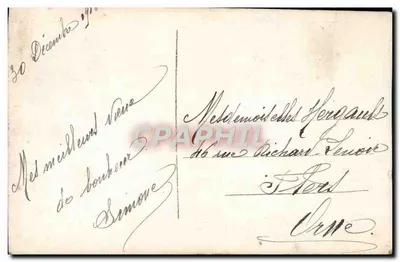 30 Décembre 191
Mes meilleurs vœux
de bonheur
Simone
Mesdemoiselles Hergault
46 rue Richard-Lenoir
Flers
Orne
CPAPHIL